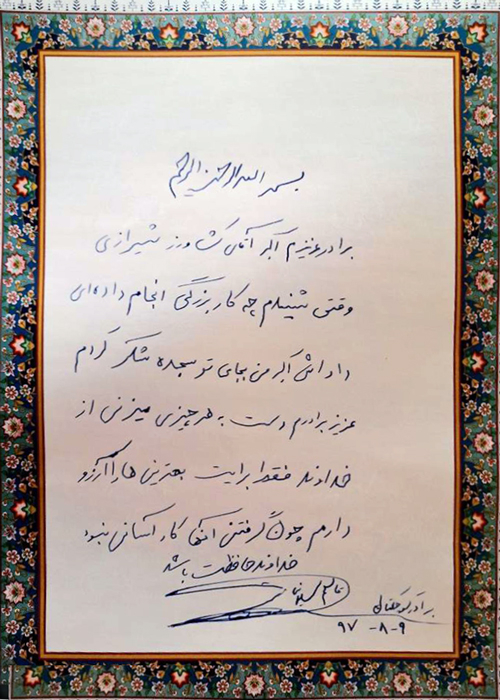 بسم الله الرحمن الرحیم
برادر عزیزم اکبر آقای کشاورز شیرازی
وقتی شنیدم چه کار بزرگی انجام داده‌ای
داداش اکبر من بجای تو سجده شکر کردم
عزیز برادرم دست به هر چیزی میزنی از
خداوند فقط برایت بهترین ها را آرزو
دارم چون گرفتن کار آسانی نبود
خداوند حافظت باشد
برادر کوچک
۹۷-۸-۹